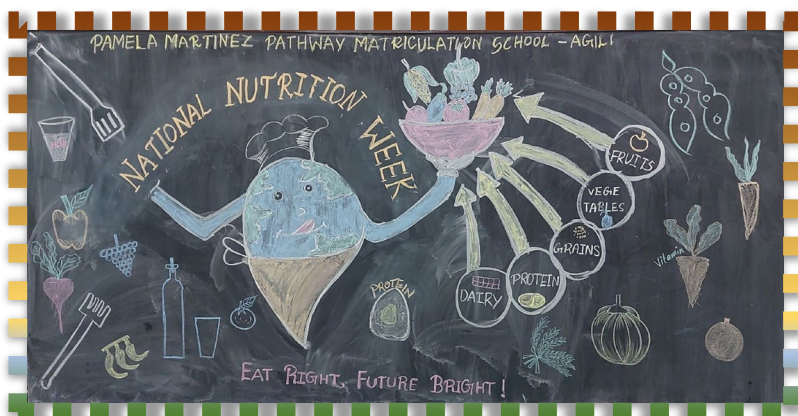 PAMELA MARTINEZ PATHWAY MATRICULATION SCHOOL - AGILI
NATIONAL NUTRITION WEEK
FRUITS
VEGE
TABLES
GRAINS
PROTEIN
DAIRY
PROTEIN
Vitamin
EAT RIGHT, FUTURE BRIGHT!